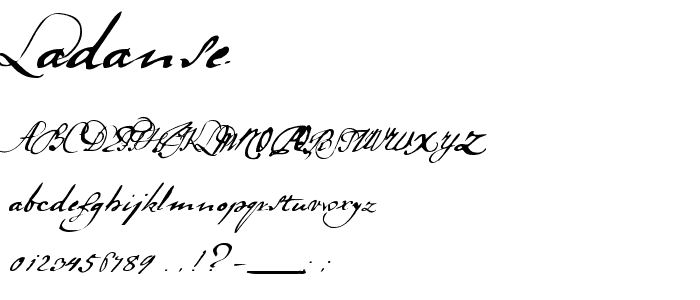 Ladanse.
ABCDEFGHIJKLMNOPQRSTUVWXYZ
abcdefghijklmnopqrstuvwxyz
0123456789 . , ! ? - _ : ;